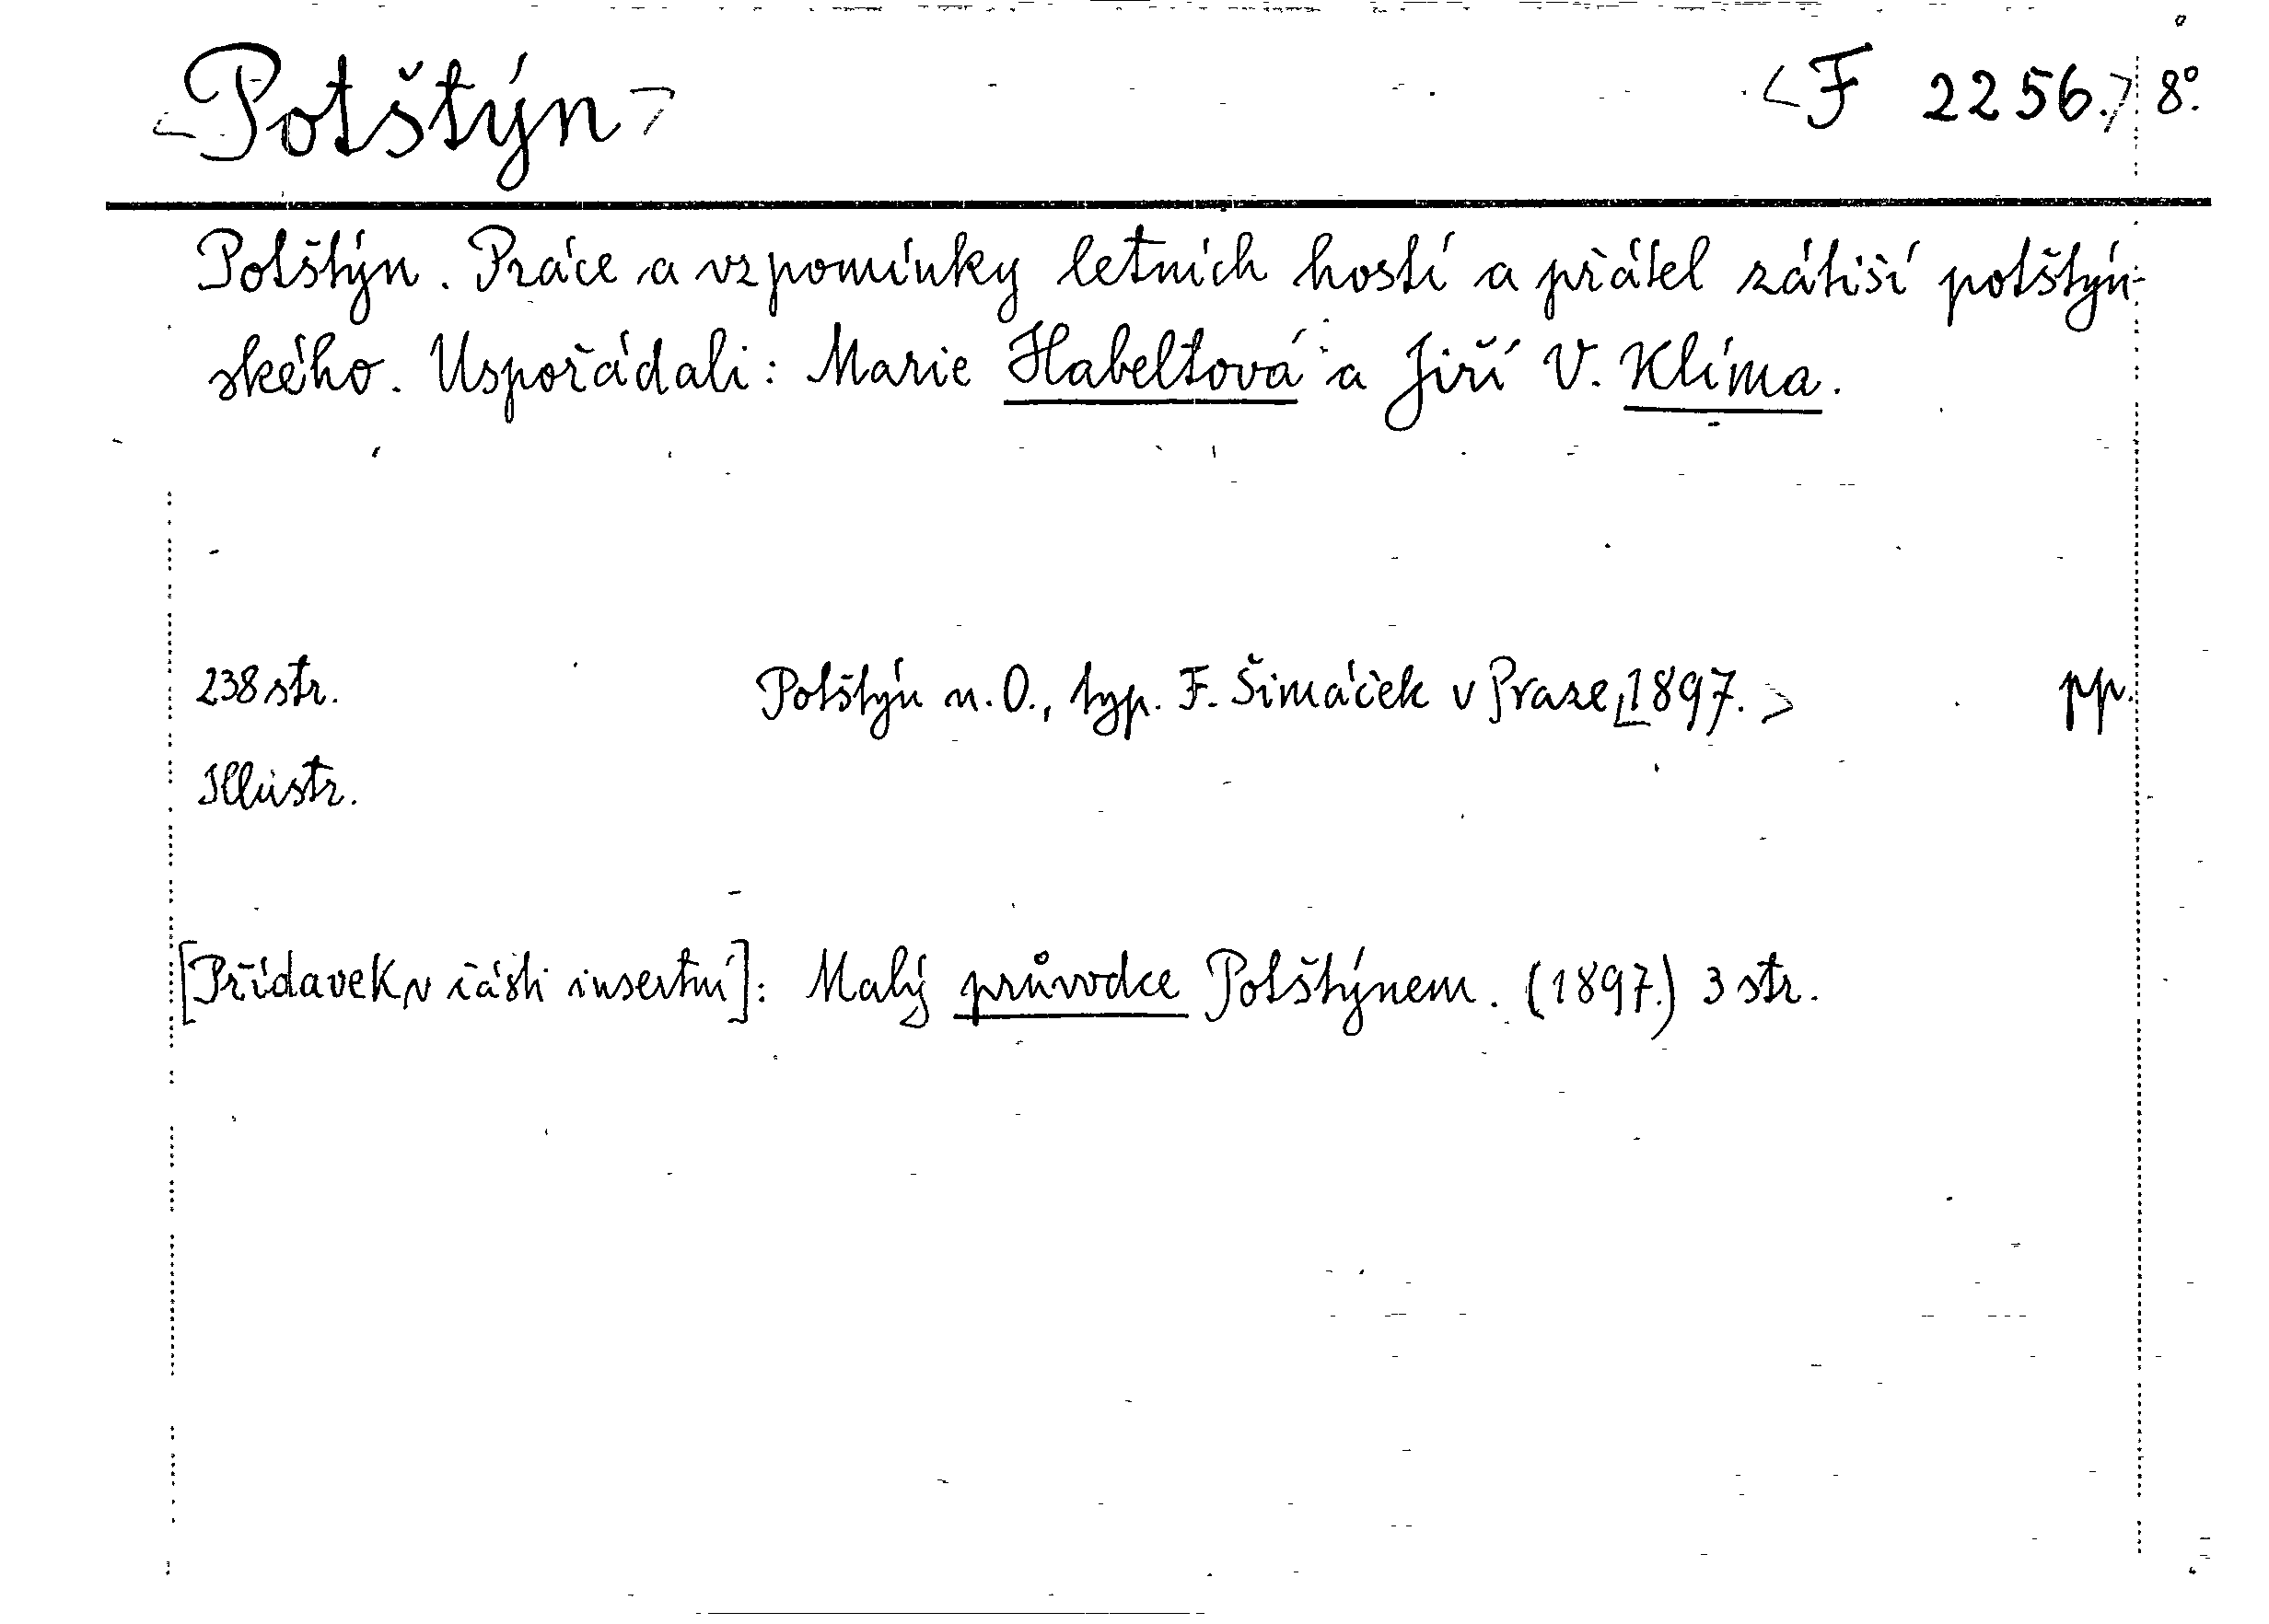 <Potštýn> <F 2256.> 8º.
Potštýn. Práce a vzpomínky letních hostí a přátel zátiší potštýn-
ského. Uspořádali: Marie Habeltová a Jiří V. Klíma.
238 str. Potštýn n. O., typ. F. Šimáček v Praze <1897.> pp.
Illustr.
[Přídavek v části insertní]: Malý průvodce Potštýnem. (1897.) 3 str.